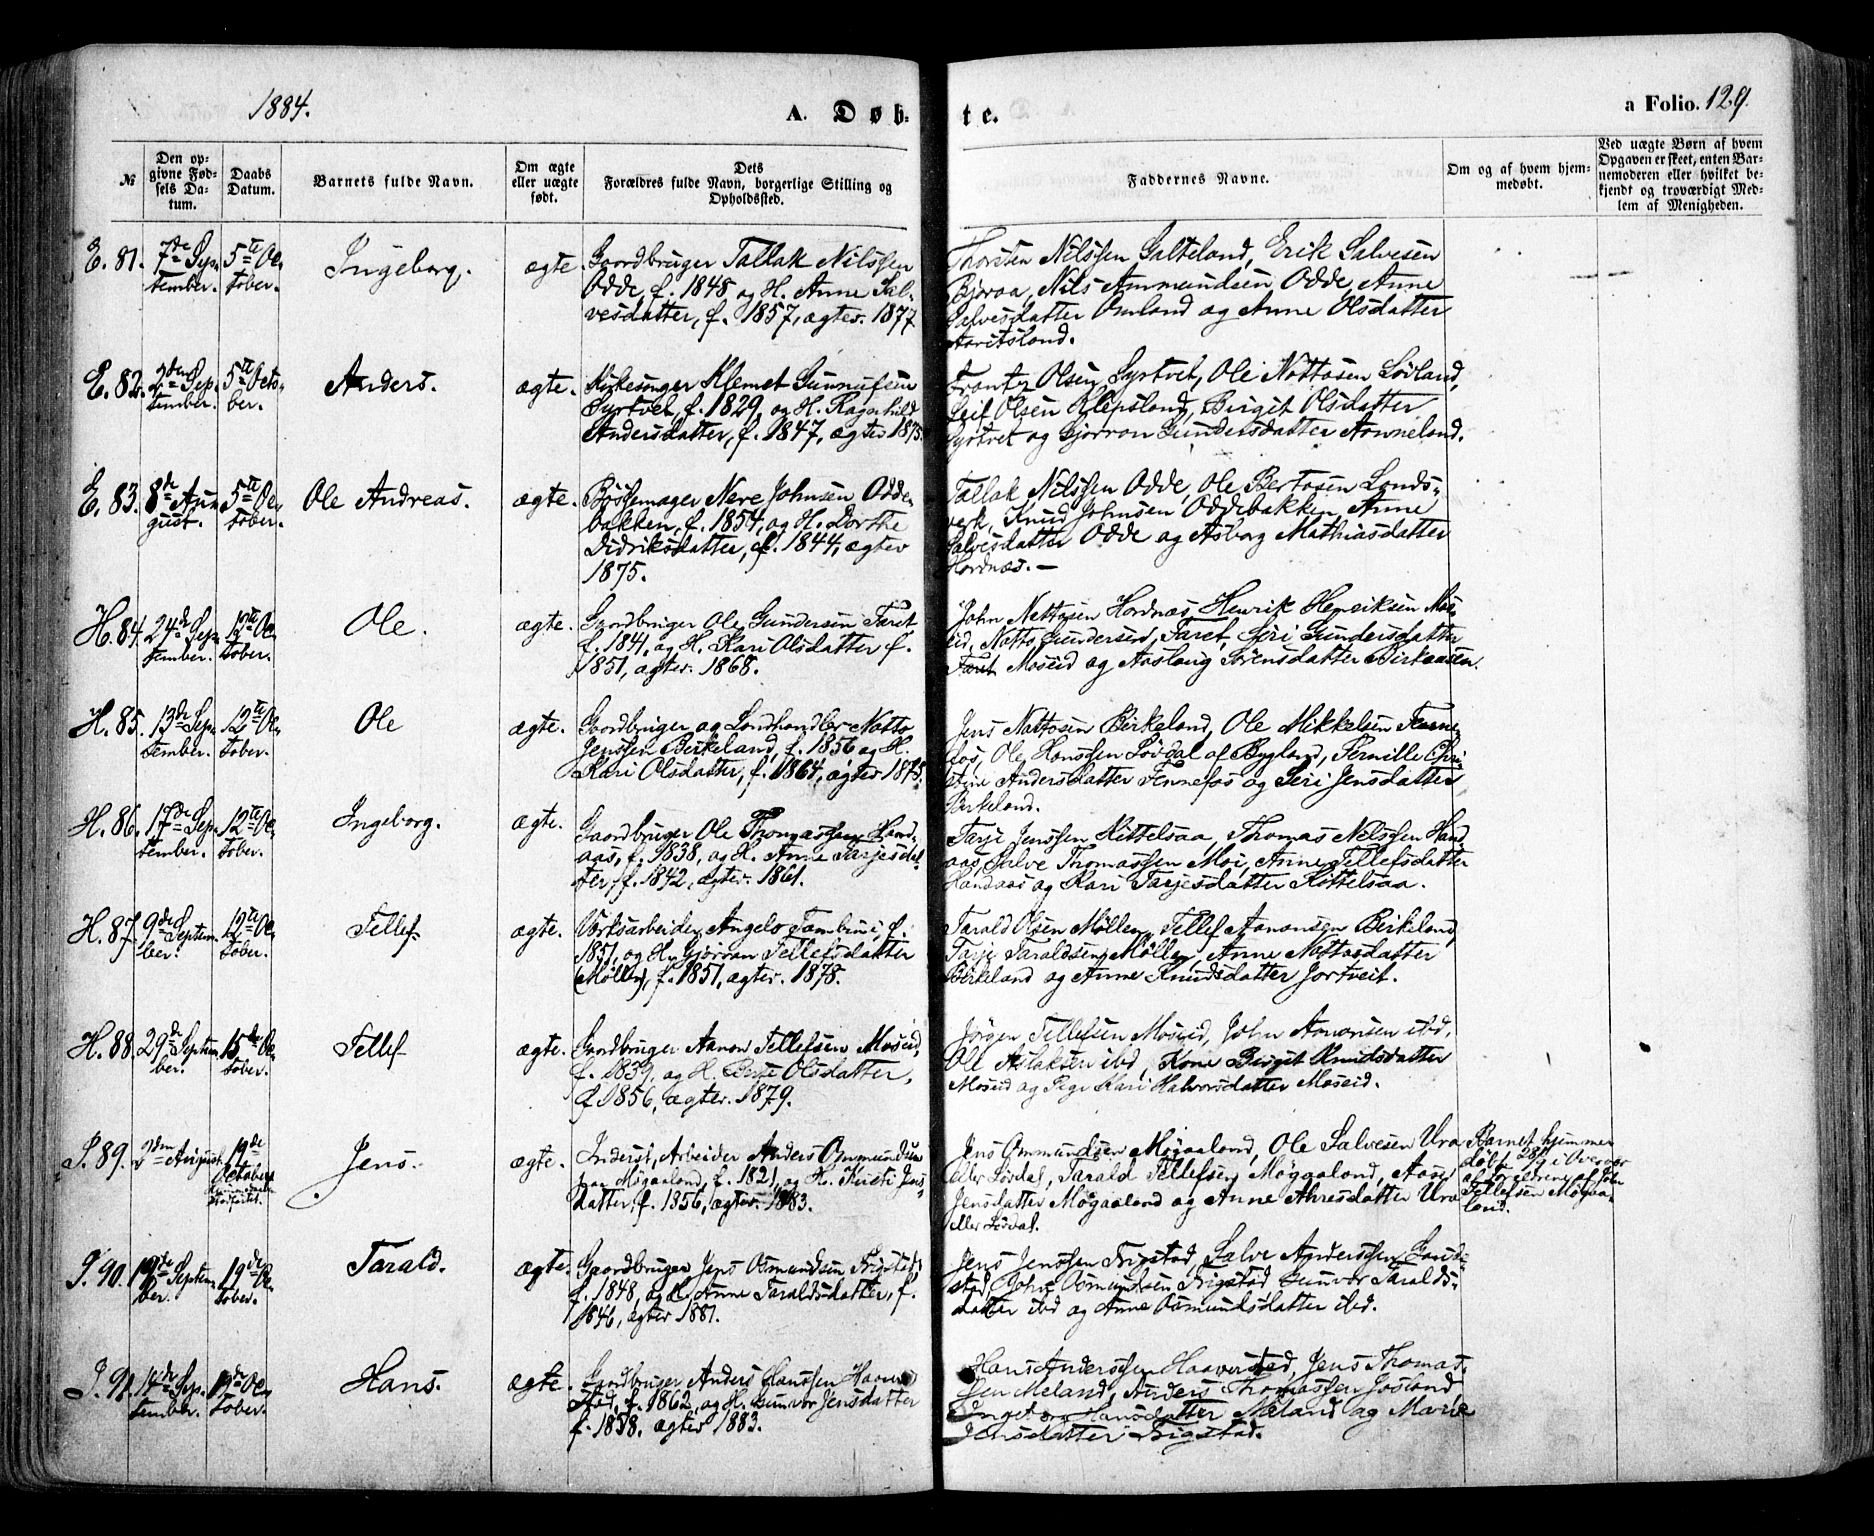 1884.
A. Døb-
te.
a Folio. 129.
№
Den op-
givne Fød-
sels Da-
tum.
Daabs
Datum.
Barnets fulde Navn.
Om ægte
eller uægte
født.
Dets
Forældres fulde Navn, borgerlige Stilling og
Opholdssted.
Faddernes Navne.
Om og af hvem hjem-
medøbt.
Ved uægte Børn af hvem
Opgaven er skeet, enten Bar-
nemoderen eller hvilket be-
kjendt og troværdigt Med-
lem af Menigheden.
E. 81.
7de Sep-
tember.
5te Oc-
tober.
Ingeborg.
ægte.
Gaardbruger Tallak Nilssen
Odde, f. 1848 og H. Anne Sal-
vesdatter, f. 1857, ægtev. 1877
Thorsten Nilssen Galteland, Erik Salvesen
Bjoraa, Nils Ammundsen Odde, Anne
Salvesdatter Omland og Anne Olsdatter
E. 82.
2den Sep-
tember.
5te Octo-
ber.
Anders.
ægte.
Kirkesanger Klemet Gunnufsen
Syrtvet, f. 1829, og H. Ragnhild
Andersdatter, f. 1847, ægtev 1875.
Olsen Syrtvet, Ole Nottosen Løvland,
Leif Olsen Klepsland, Birgit Olsdatter
Syrtvet og Gjørron Gundersdatter
E. 83.
8de Au-
gust.
5te Oc-
tober.
Ole Andreas.
ægte.
Bøssemager Nere Johnsen Odde-
bakken, f. 1854, og H. Dorthe
Didriksdatter, f. 1844, ægtev
1875.
Tallak Nilssen Odde, Ole Bertosen Lands-
verk, Knud Johnsen Oddebakken, Anne
Salvisdatter Odde og Asborg Mathiasdatter
Hordnæs. —
H. 84.
24de Sep-
tember.
12te Oc-
tober.
Ole.
ægte.
Gaardbruger Ole Gundersen Faret
f. 1841, og H. Kari Olsdatter f.
1851, ægtev. 1868.
John Nottosen Hordnæs, Henrik Henriksen Mos-
eid, Notto Gundersen, Faret, Siri Gundersdatter
Faret Moseid og Aaslaug Sørensdatter Birkaasen.
H. 85.
13de Sep-
tember.
12te Oc-
tober.
Ole
ægte.
Gaardbruger og Landhandler Notto
Jenssen Birkeland, f. 1856 og H.
Kari Olsdatter, f. 1864, ægtev 1875.
Jens Nottosen Birkeland, Ole Mikkelsen Fenne-
fos, Ole Hanssen Lövdal af Bygland, Pernille Chri-
stine Andersdatter Fennefos og Siri Jensdatter
Birkeland.
H. 86.
17de Sep-
tember.
12te Oc-
tober.
Ingeborg.
ægte.
Gaardbruger Ole Thomassen Hand-
aas, f. 1838, og H. Anne Tarjesdat-
ter, f. 1842, ægtev. 1861.
Tarje Jenssen Kittelsaa, Thomas Nilssen Hand-
aas, Salve Thomassen Moi, Anne Tellefsdatter
Handaas og Kari Tarjesdatter Kittelsaa.
H. 87.
9de Septem-
ber.
12te Oc-
tober.
Tellef
ægte.
Verksarbeider Angelo Tambini, f.
1851, og H. Gjørran Tellefsdatter
(Møllen), f. 1851, ægtev. 1878.
Tarald Olsen Møllen, Tellef Aanonsen Birkeland,
Tarje Taraldsen Møllen, Anne Nottosdatter
Birkeland og Anne Knudsdatter Jortveit.
H. 88.
29de Septem-
ber.
15de Oc-
tober.
Tellef
ægte.
Gaardbruger Aanon Tellefsen Moseid,
f. 1839, og H. Berte Olsdatter,
f. 1856, ægtev. 1879.
Jörgen Tellefsen Moseid, John Aanonsen ibid,
Ole Aslaksen ibd, Kone Birgit Knudsdatter
Moseid og Pige Kari Halvorsdatter Moseid.
I. 89.
2den August.
19de
October
ægte.
Jens.
Inderst, Arbeider Anders Ommundsen
paa Møgaaland, f. 1821, og H. Kirsti Jens-
datter, f. 1856, ægtev. 1883.
Jens Ommundsen Møgaaland, Ole Salvesen Ura
eller Lövdal, Tarald Tellefsen Møgaaland, Aase
Jensdatter Møgaaland og Anne Ahresdatter Ura
eller Lövdal.
Barnet hjemme-
døbt 28/9 i Overvær
af Forældrene af John
Tellefsen Møgaa-
land.
I. 90.
Septem-
ber.
19de Oc-
tober.
Tarald.
ægte.
Gaardbruger Jens Osmundsen Frigstad,
f. 1848, og H. Anne Taraldsdatter, f.
1846, ægtev 1881.
Jens Jenssen Frigstad, Salve Anderssen
John Osmundsen Frigstad Gunvor Taralds-
datter ibd og Anne Osmundsdatter ibd.
I. 91.
14de Sep-
tember.
19de Oc-
tober.
Hans.
ægte.
Gaardbruger Anders Hanssen Haaver-
stad, f. 1862, og H. Gunvor Jensdatter
f. 1858, ægtev 1883.
Hans Anderssen Haaverstad, Jens Thomas-
sen Meland, Anders Thomassen Josland
Ingeborg Hansdatter Meland og Marie
Jensdatter Frigstad.